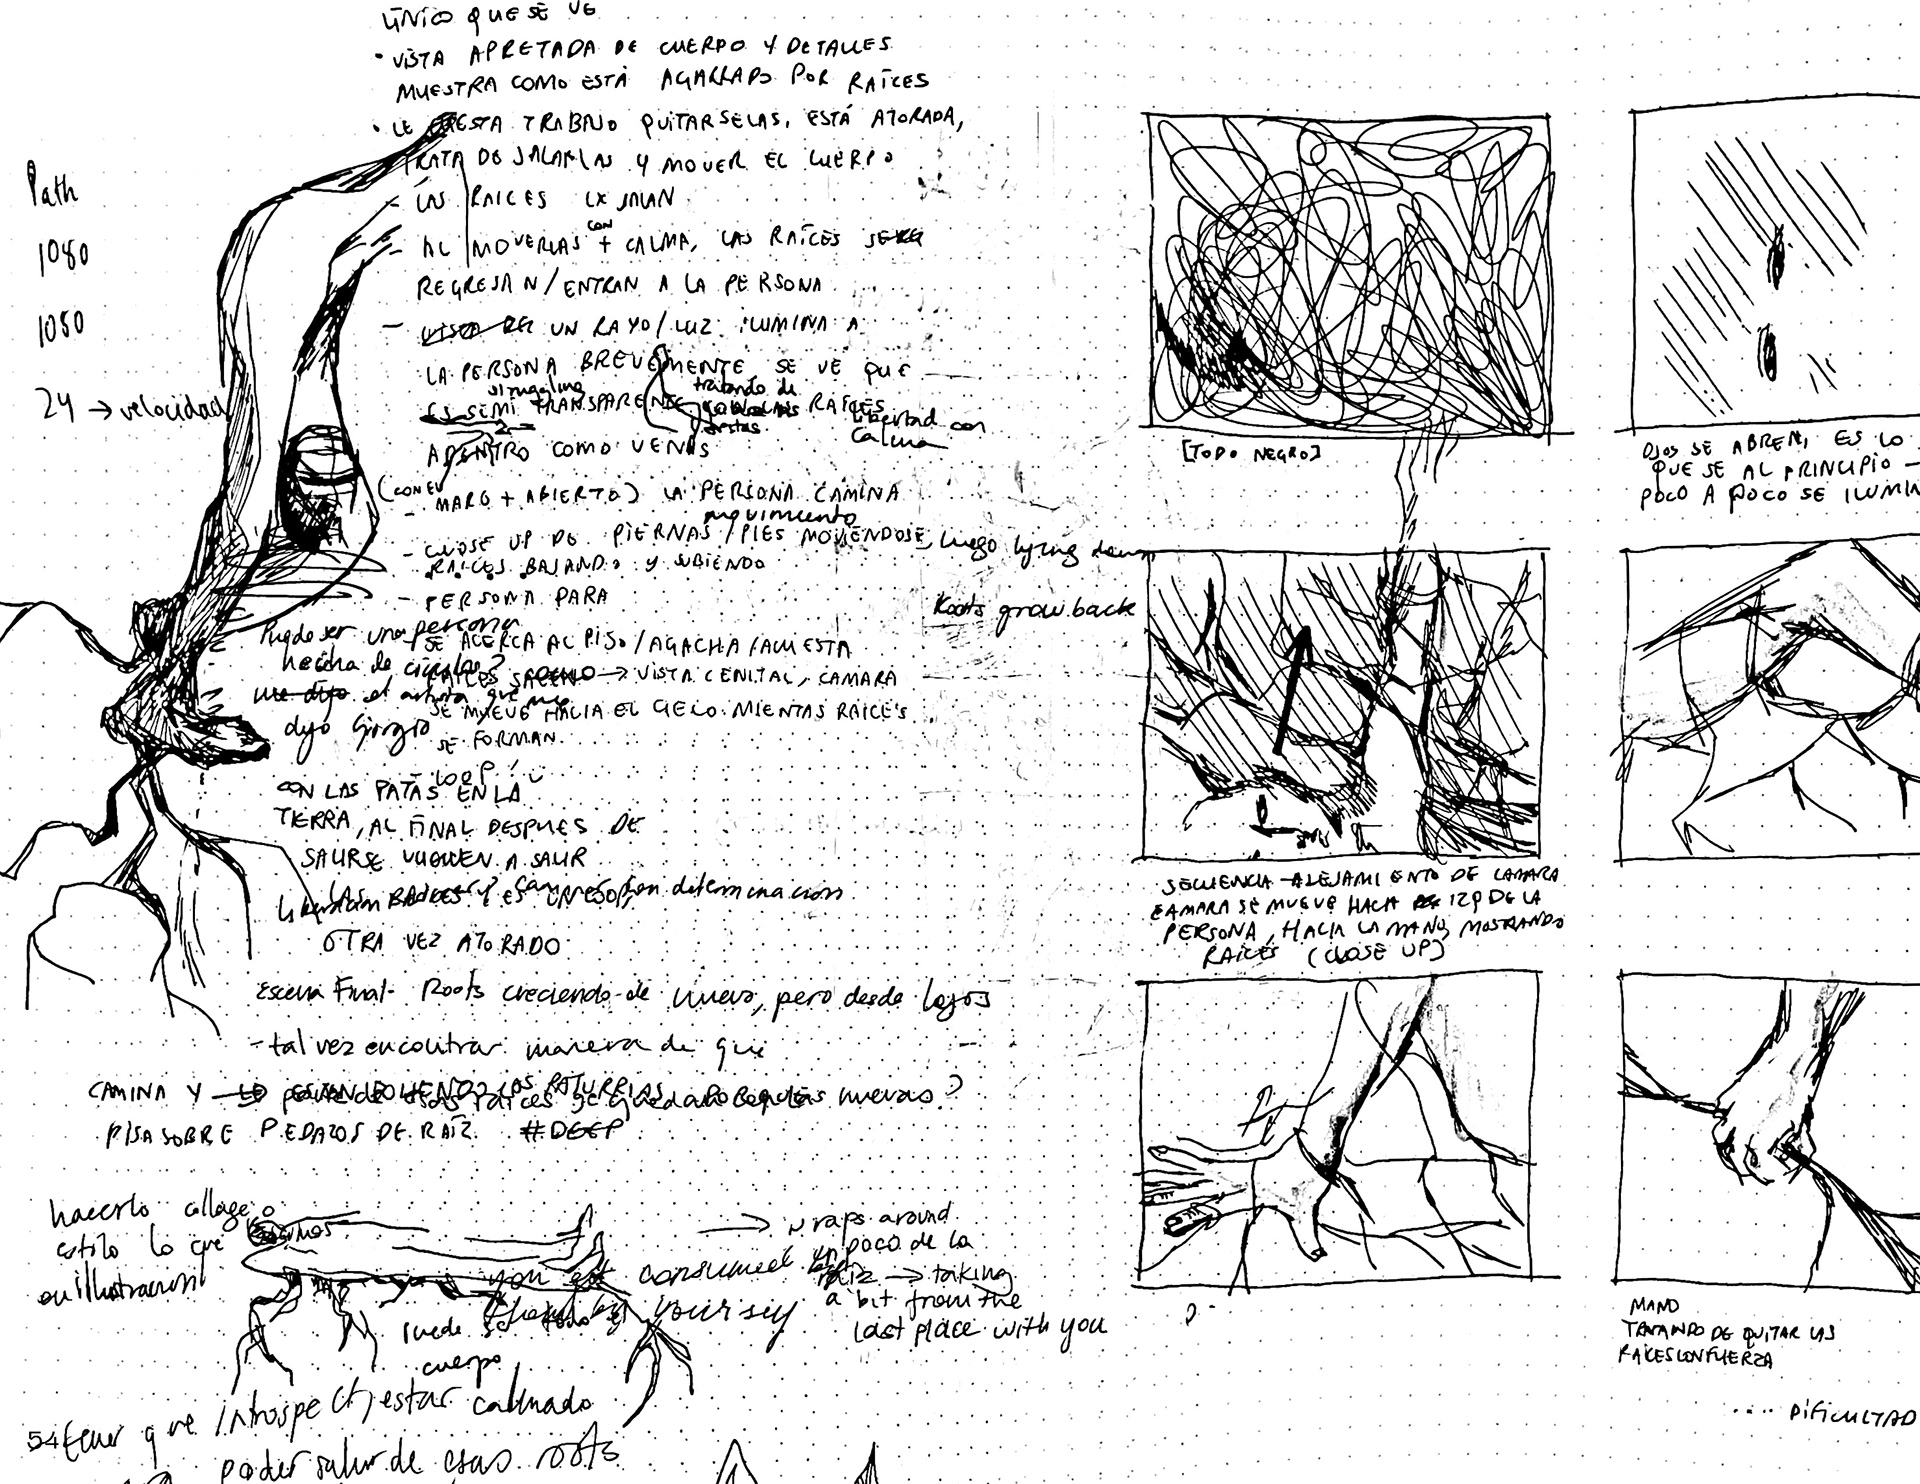 ÚNICO QUE SE VE
• VISTA APRETADA DE CUERPO Y DETALLES
MUESTRA COMO ESTÁ AGARRADO POR RAÍCES
• LE CUESTA TRABAJO QUITARSELAS, ESTÁ ATORADA,
TRATA DE JALARLAS Y MOVER EL CUERPO
- LAS RAICES LX JALAN
- AL MOVERLAS CON + CALMA, LAS RAÍCES SE
REGRESAN/ENTRAN A LA PERSONA
- UN RAYO/LUZ ILUMINA A
LA PERSONA BREVEMENTE SE VE QUE
ES SEMI TRANSPARENTE RAÍCES
tratando de
libertad con
calma
ADENTRO COMO VENAS
MARO + ABIERTO) LA PERSONA CAMINA
movimiento
- CLOSE UP DE PIERNAS/PIES MOVIENDOSE, luego lying down
RAICES BAJANDO Y SUBIENDO
- PERSONA PARA
SE ACERCA AL PISO/AGACHA/ACUESTA
→ VISTA CENITAL, CAMARA
SE MUEVE HACIA EL CIELO MIENTAS RAICES
SE FORMAN
LOOP
Path
1080
1050
24 → velocidad
Puede ser una persona
hecha de circulos?
me dijo el artista que me
dijo Giorgio
CON LAS PATAS EN LA
TIERRA, AL FINAL DESPUES DE
SALIRSE VUELVEN A SALIR
LAS RAICES Y ES UN LOOP,
determinacion
OTRA VEZ ATORADO
Escena Final- Roots creciendo de nuevo, pero desde lejos
- tal vez encontrar manera de que
nuevas?
CAMINA Y
PISA SOBRE PEDAZOS DE RAÍZ #DEEP
hacerlo collage o
estilo lo que
en illustracion
→ wraps around
un poco de la
raiz → taking
a bit from the
last place with you
you get consumed by
yourself
Puede ser todo el
cuerpo
54
Tener que introspect, estar calmado
poder salir de esas roots
[TODO NEGRO]
OJOS SE ABREN, ES LO
QUE SE AL PRINCIPIO —
POCO A POCO SE ILUMIN
Roots grow back
SECUENCIA - ALEJAMIENTO DE CAMARA
CAMARA SE MUEVE HACIA IZQ DE LA
PERSONA, HACIA LA MANO, MOSTRANDO
RAICES (CLOSE UP)
MANO
TRATANDO DE QUITAR LAS
RAICES CON FUERZA
.... DIFICULTAD